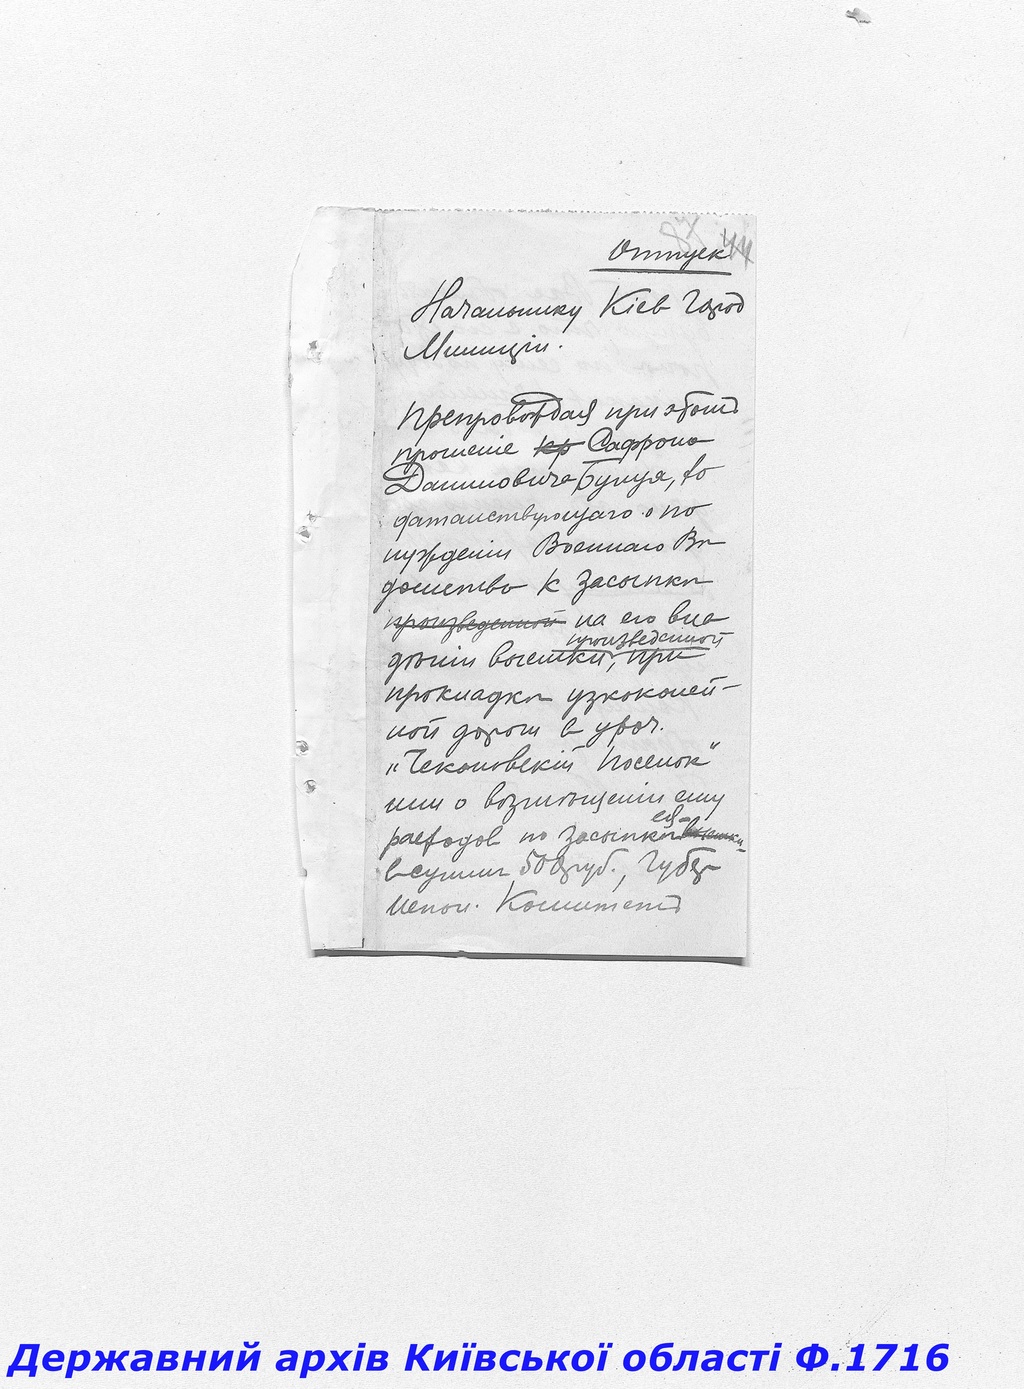 44
Отпуск
Начальнику Кіев Город
Милиціи.
Препровождая при этомъ
прошеніе кр Сафрона
Даниловича Булуя, хо
датайствующаго о по
нужденіи Военнаго Вѣ
домства к засыпкѣ
произведенной на его вла
дѣніи выемки, произведенной при
прокладкѣ узкоколей-
ной дороги в уроч.
„Чекановскій Поселок"
или о возмѣщеніи ему
расходов по засыпкѣ ея выемки
в суммѣ 500 руб., Губер
Испол. Комитетъ
Державний архів Київської області Ф.1716